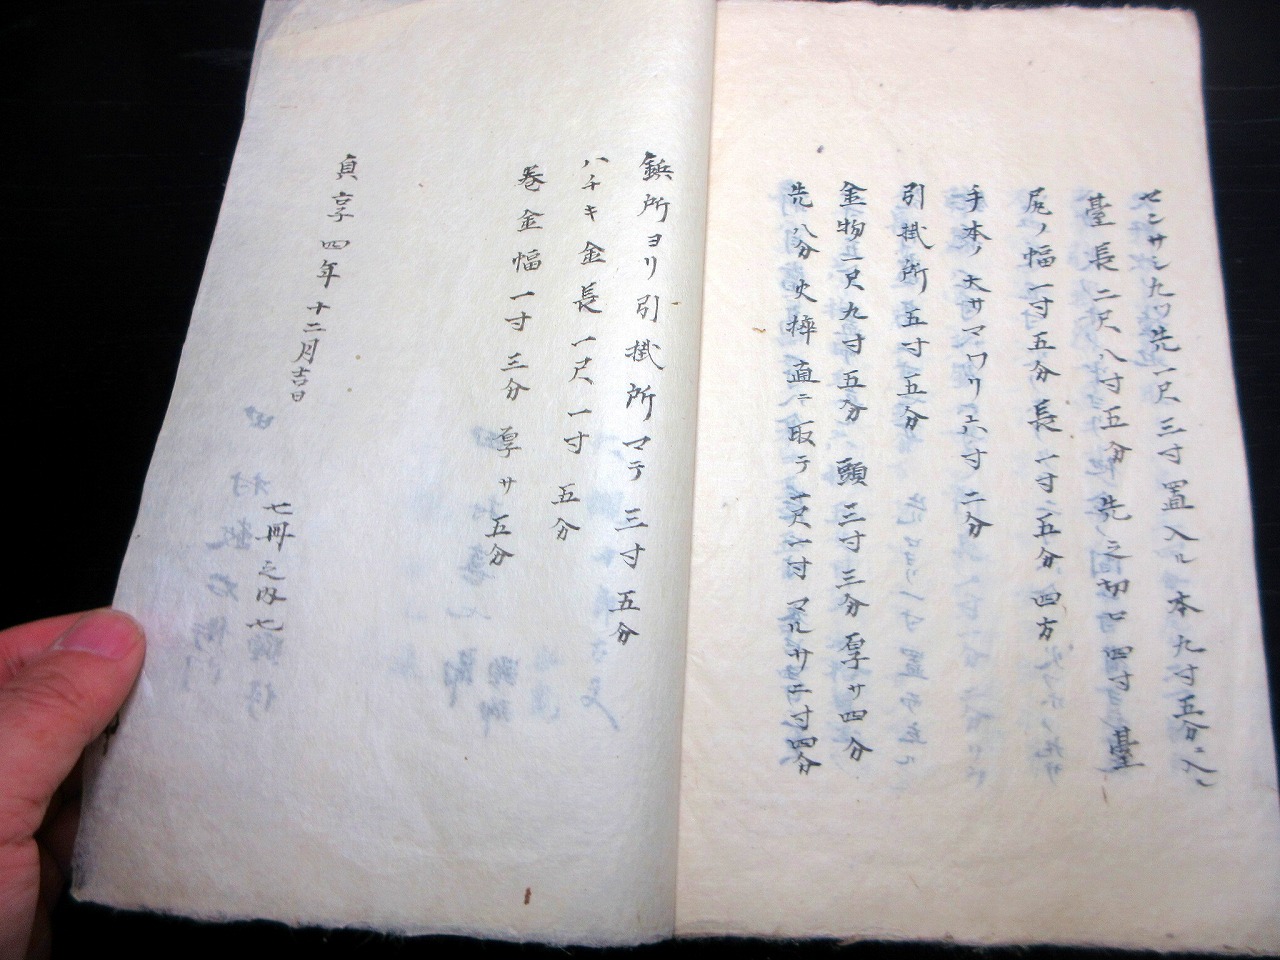 センサシ九ツ先一尺三寸置入ル本九寸五分ニ入ル
臺長二尺八寸五分先之切口四寸臺
尻ノ幅一寸五分長一寸五分四方
手本ノ大サマワリ六寸二分
引掛所五寸五分
金物一尺九寸五分頭三寸三分厚サ四分
先八分火捽直ニ取テ一尺一寸マルサ二寸四分
鋲所ヨリ引掛所マテ三寸五分
ハチキ金長一尺一寸五分
巻金幅一寸三分厚サ五分
貞享四年十二月吉日
七冊之内七